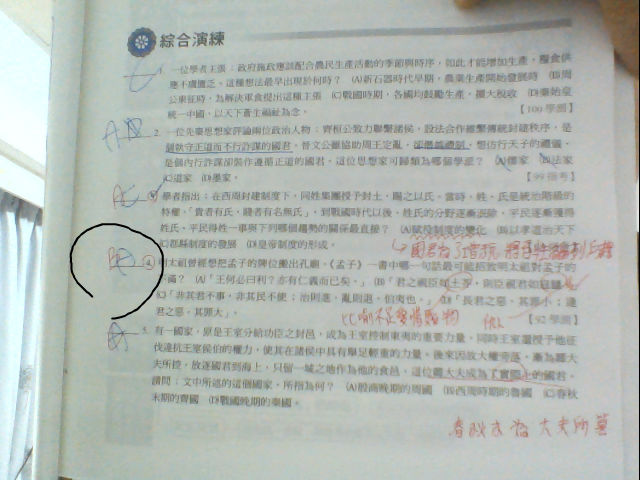 綜合演練
1. 一位學者主張：政府施政應該配合農民生產活動的季節與時序，如此才能增加生產，糧食供
應不虞匱乏。這種想法最早出現於何時？ (A)新石器時代早期，農業生產開始發展時 (B)周
公東征時，為解決軍食提出這種主張 (C)戰國時期，各國均鼓勵生產，擴大稅收 (D)秦始皇
統一中國，以天下蒼生福祉為念。 【100學測】
2. 一位先秦思想家評論兩位政治人物：齊桓公致力聯繫諸侯，設法合作維繫傳統封建秩序，是
個執守正道而不行詐謀的國君。晉文公雖協助周王定亂，卻僭越禮制，想仿行天子的禮儀，
是個內行詐謀卻裝作遵循正道的國君，這位思想家可歸類為哪個學派？ (A)儒家 (B)法家
(C)道家 (D)墨家。 【99指考】
3. 學者指出：在西周封建制度下，同姓集團授予封土，賜之以氏，當時，姓、氏是統治階級的
特權，「貴者有氏，賤者有名無氏」，到戰國時代以後，姓氏的分野逐漸泯除，平民逐漸獲得
姓氏，平民得姓一事與下列哪個趨勢的關係最直接？ (A)賦役制度的變化 (B)以孝道治天下
(C)郡縣制度的發展 (D)皇帝制度的形成。
4. 明太祖曾經想把孟子的牌位搬出孔廟，《孟子》一書中哪一句話最可能招致明太祖對孟子的
不滿？ (A)「王何必曰利？亦有仁義而已矣。」 (B)「君之視臣如土芥，則臣視君如寇讎。」
(C)「非其君不事，非其民不使；治則進，亂則退，伯夷也。」 (D)「長君之惡，其罪小；逢
君之惡，其罪大」。 【92學測】
比喻不足愛惜的物
5. 有一國家，原是王室分給功臣之封邑，成為王室控制東夷的重要力量，同時王室還授予他征
伐違抗王室侯伯的權力，使其在諸侯中具有舉足輕重的力量。後來因放大權旁落，漸為權大
夫所控，放逐國君到海上，只留一城之地作為他的食邑，這位權大夫成為了實際上的國君。
請問：文中所述的這個國家，所指為何？ (A)殷商晚期的周國 (B)西周時期的魯國 (C)春秋
末期的齊國 (D)戰國晚期的秦國。
春秋末為大夫所篡